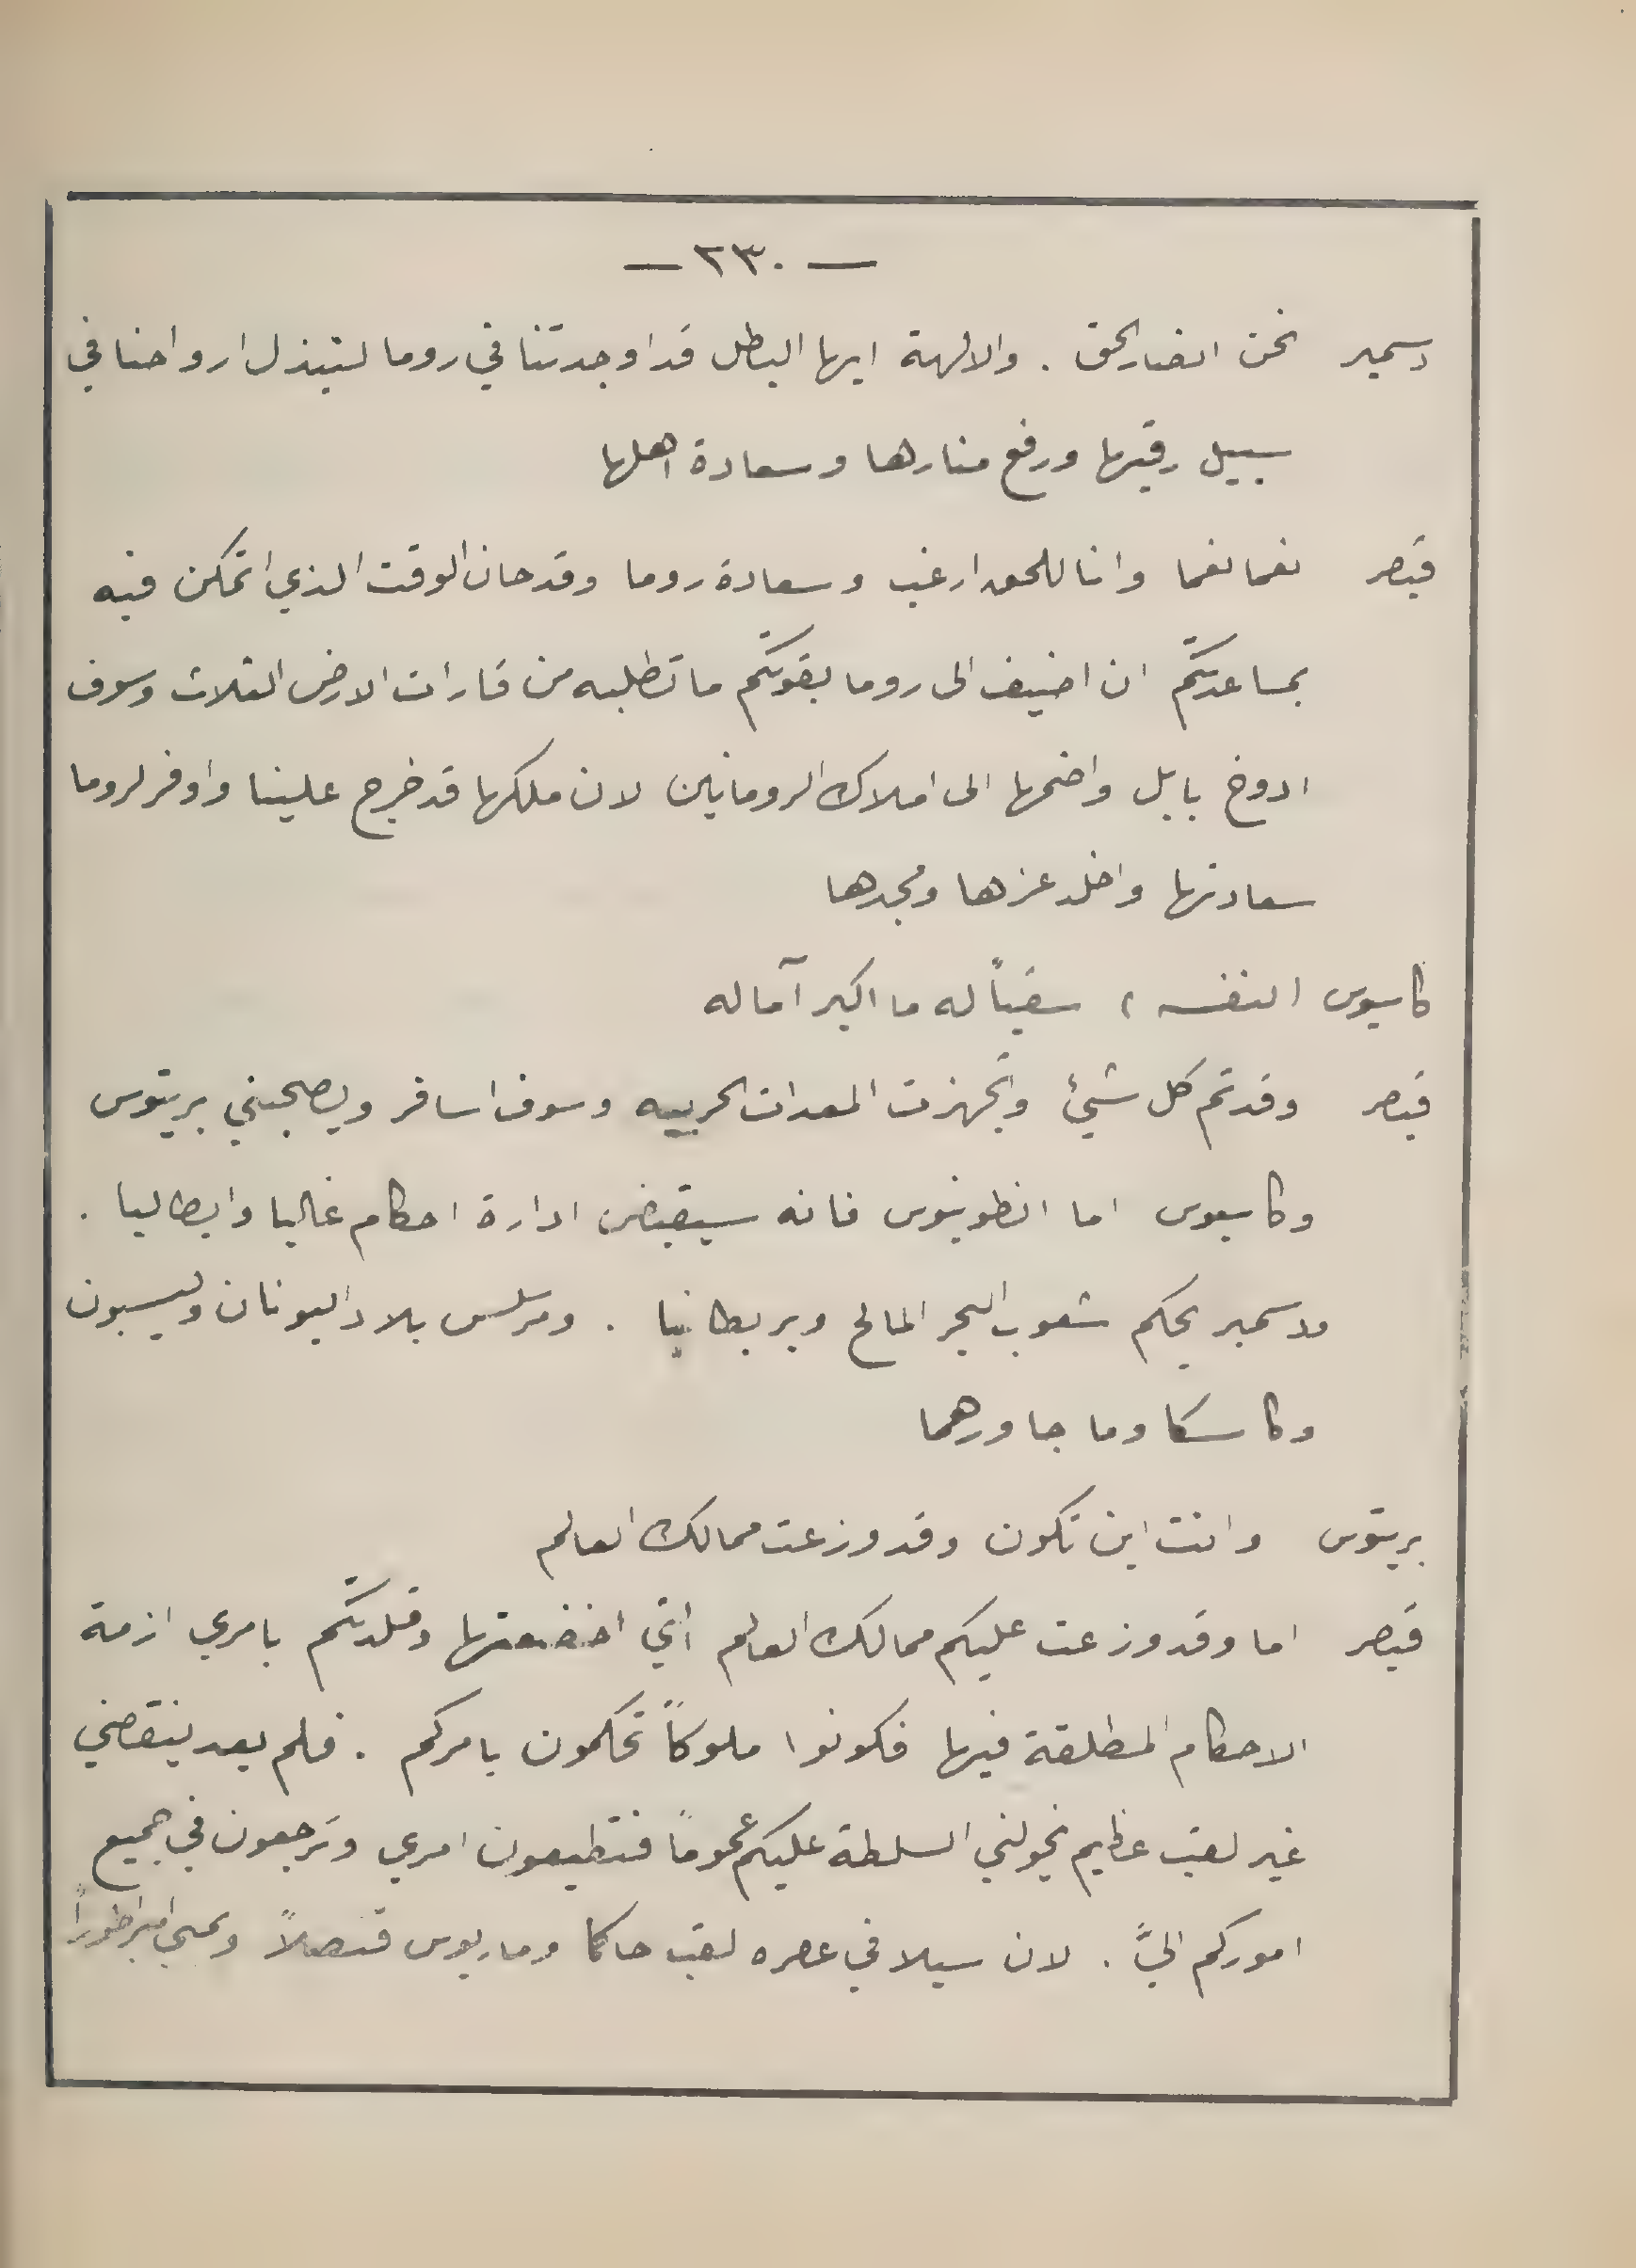 — ٢٣٠ —
دسمير نحن انصار الحق . والالهة ايها البطل قد اوجدتنا في روما لنبذل ارواحنا في
سبيل رقيها ورفع منارها وسعادة اهلها
قيصر نعما نعما وانا للحق ارغب وسعادة روما وقد حان الوقت الذي اتمكن فيه
بمساعدتكم ان اضيف الى روما بقوتكم ما تطلبه من قارات الارض الثلاث وسوف
ادوخ بابل واضمها الى املاك الرومانيين لان ملكها قد خرج علينا واوفر لروما
سعادتها واخلد عزها ومجدها
كاسيوس (لنفسه) سقياً له ما اكبر آماله
قيصر وقد تم كل شيئ وتجهزت المعدات الحربيه وسوف اسافر ويصحبني بريتوس
وكاسيوس اما انطونيوس فانه سيقبض ادارة احكام غاليا وايطاليا .
ودسمير يحكم شعوب البحر المالح وبريطانيا . ومرسلس بلاد اليونان وليسبون
وكاسكا وما جاورهما
بريتوس وانت اين تكون وقد وزعت ممالك العالم
قيصر اما وقد وزعت عليكم ممالك العالم التي اخضعتها وقلدتكم بامري ازمة
الاحكام المطلقة فيها فكونوا ملوكاً تحكمون بامركم . فلم يعد ينقصني
غير لقب عظيم يخولني السلطة عليكم عموماً فتطيعون امري وترجعون في جميع
اموركم اليَّ . لان سيلا في عصره لقب حاكما وماريوس قنصلاً وبمبي امبراطوراً